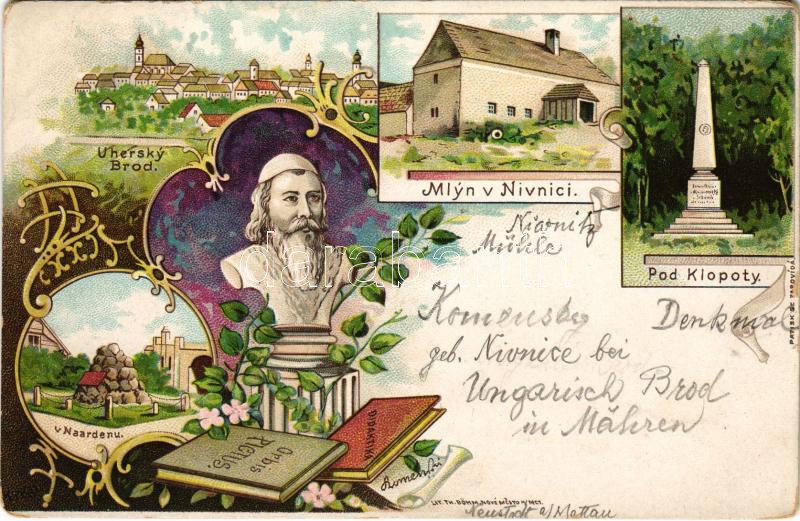 Uherský
Brod.
Mlýn v Nivnici.
Pod Klopoty.
v Naardenu.
Orbis
Pictus.
DIDAKTIKA
Komenský
Niwnitz
Mühle
Komensky Denkmal
geb. Nivnice bei
Ungarisch Brod
in Mähren
LIT. TH. BÖHM, NOVÉ MĚSTO N/MET.
Neustadt a/Mettau
PATISK SE ZAPOVÍDÁ
darabanth